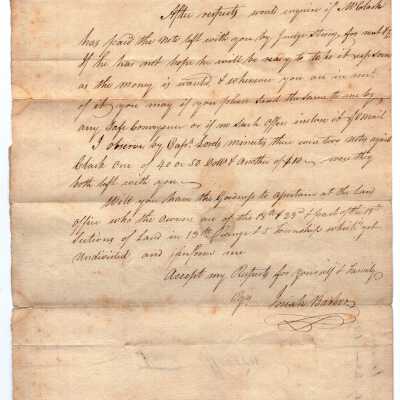 After respects would enquire if Mr Clark
has paid the Note left with you by Judge
If he has not hope he will be ready to do it as soon
as the money is wanted, & whenever you are in
of it you may if you please Send the same to me by
any Safe Conveyance or if no such offer inclose it by Mail
I observe by Capt. Lords minutes there were two notes against
Clark One of 40 or 50 Doll & Another of $10 were they
both left with you
Will you have the Goodness to ascertain at the Land
office who the owners are of the 18th & 23d & East of the 19th
Sections of Land in 13th Range & 5 Township which yet
Undivided and inform me
Accept my Respects for yourself & Family
Josiah Barber